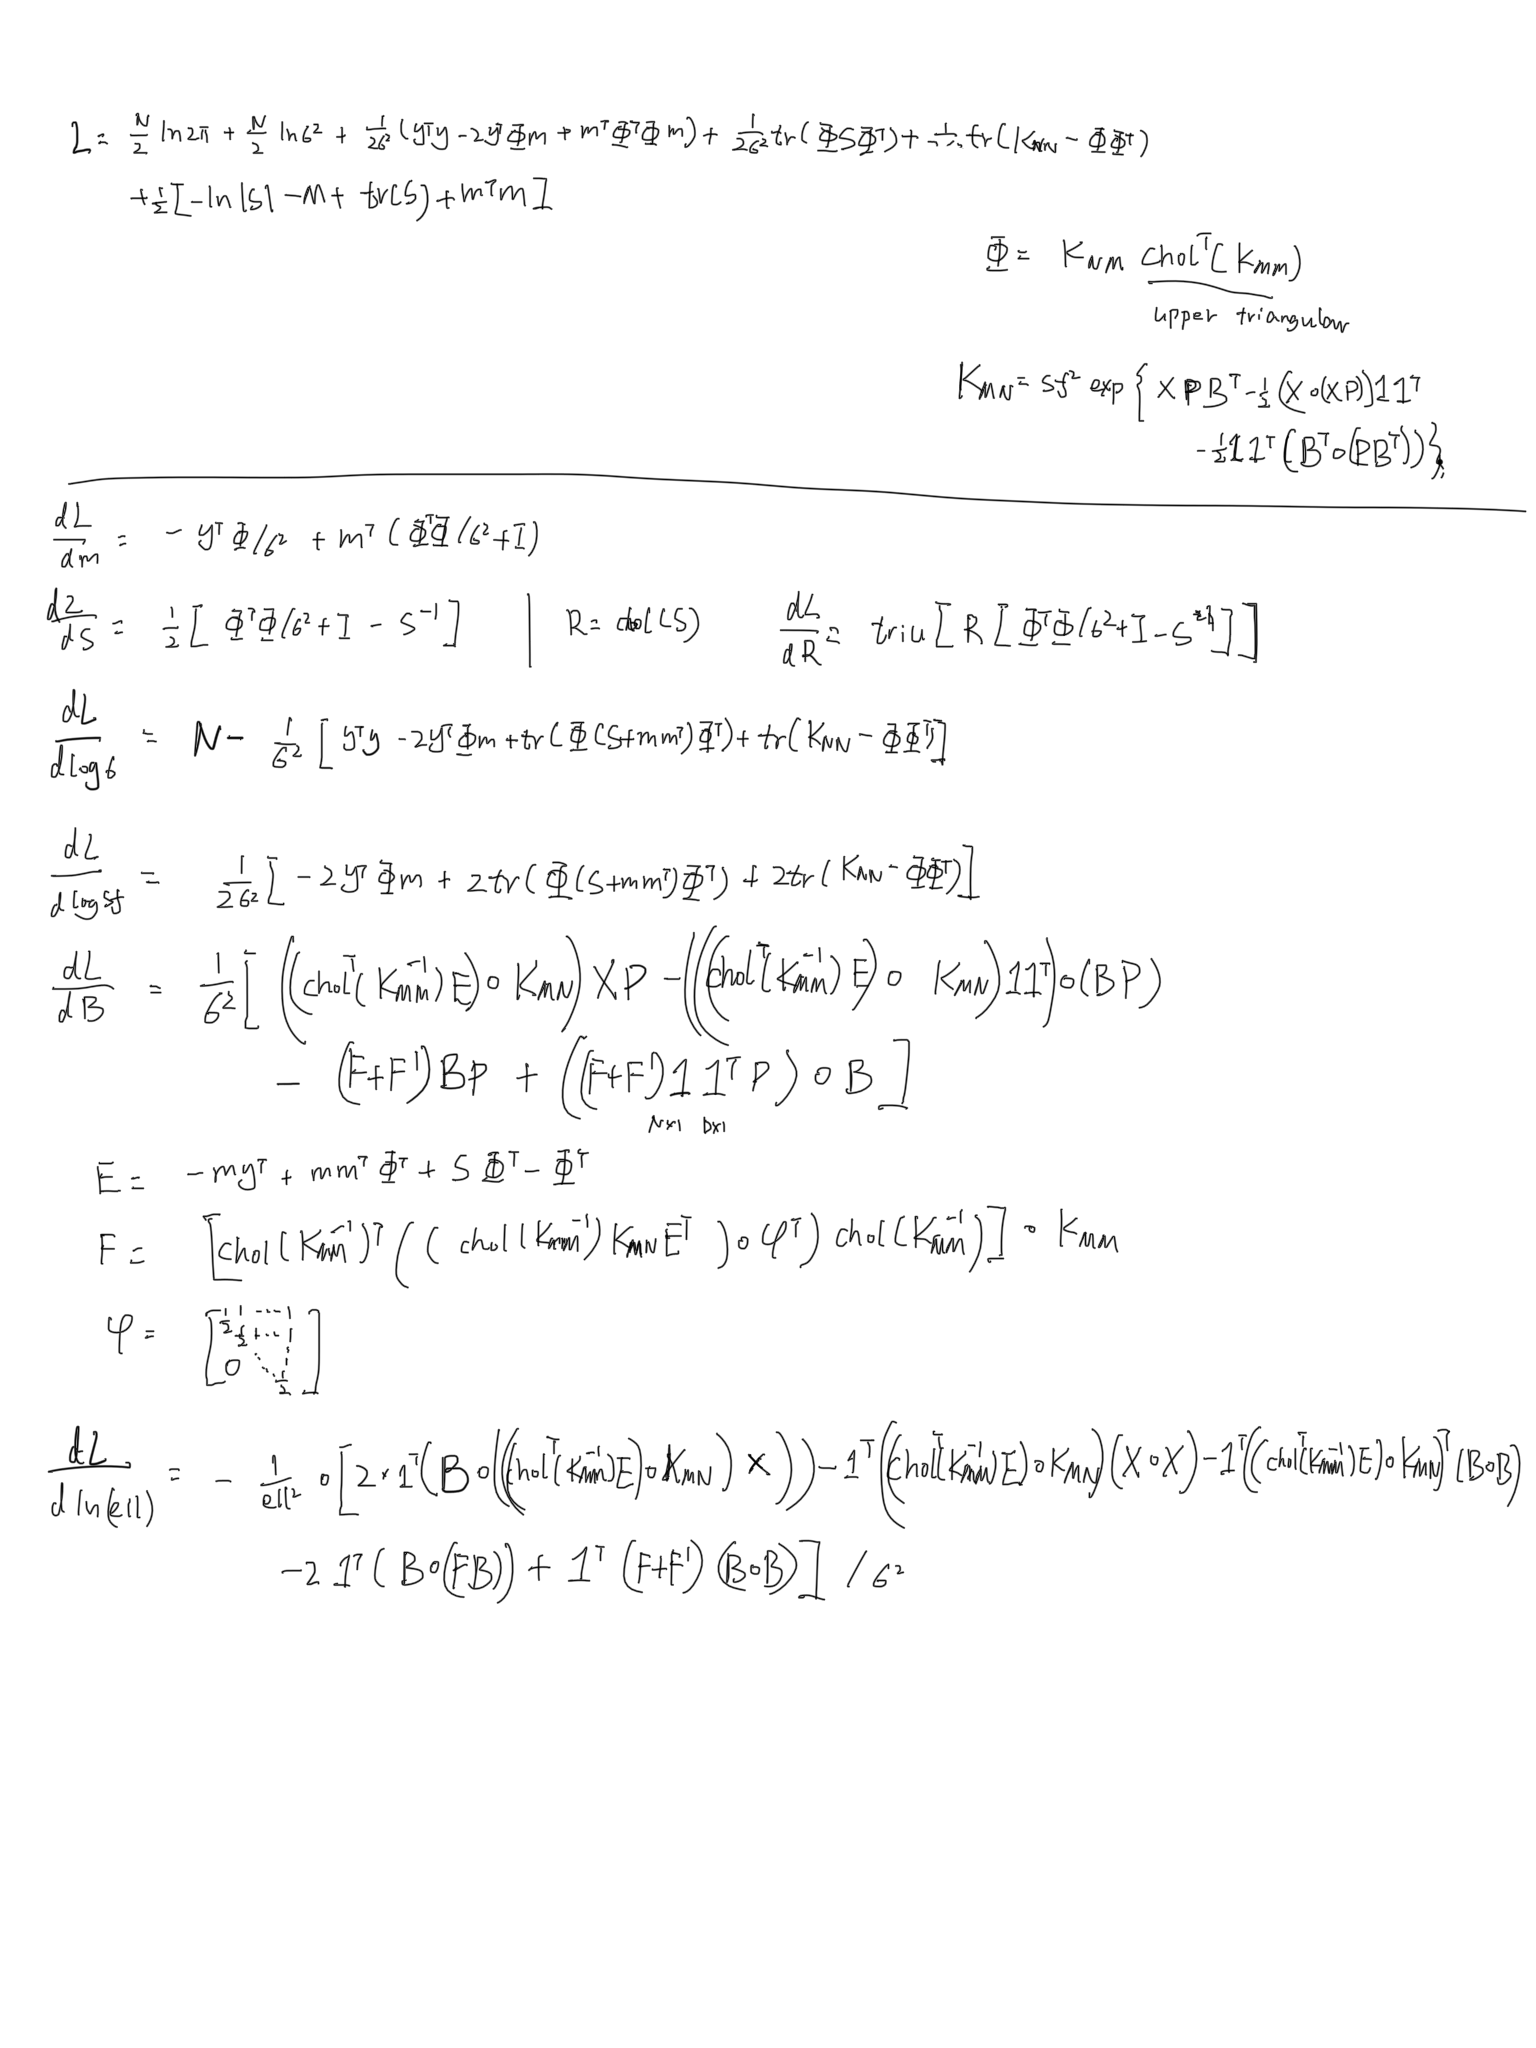 L = N/2 ln2π + N/2 lnσ² + 1/2σ² (yᵀy - 2yᵀΦm + mᵀΦᵀΦm) + 1/2σ² tr(ΦSΦᵀ) + tr(K_NN - ΦΦᵀ)
+ 1/2 [-ln|S| - M + tr(S) + mᵀm]
Φ = K_NM cholᵀ(K_MM)
upper triangular
K_MN = sf² exp{ XPBᵀ - 1/2 (X∘(XP))11ᵀ
- 1/2 11ᵀ(Bᵀ∘(PBᵀ))};
dL/dm = - yᵀΦ/σ² + mᵀ(ΦᵀΦ/σ² + I)
dL/dS = 1/2 [ΦᵀΦ/σ² + I - S⁻¹] | R = chol(S) dL/dR = triu[R[ΦᵀΦ/σ² + I - S⁻¹]]
dL/dlogσ = N - 1/σ² [yᵀy - 2yᵀΦm + tr(Φ(S+mmᵀ)Φᵀ) + tr(K_NN - ΦΦᵀ)]
dL/dlogsf = 1/2σ² [-2yᵀΦm + 2tr(Φ(S+mmᵀ)Φᵀ) + 2tr(K_NN - ΦΦᵀ)]
dL/dB = 1/σ² [((cholᵀ(K_MM⁻¹)E)∘K_MN)XP - (((cholᵀ(K_MM⁻¹)E)∘K_MN)11ᵀ)∘(BP)
- (F+F')BP + ((F+F')11ᵀP)∘B]
N×1 D×1
E = -myᵀ + mmᵀΦᵀ + SΦᵀ - Φᵀ
F = [chol(K_MM⁻¹)ᵀ((chol(K_MM⁻¹)K_MN Eᵀ)∘φᵀ)chol(K_MM⁻¹)]∘K_MM
φ = [1/2 1 ---1
1/2 1...1
0 ⋱ 1/2]
dL/dln(ell) = - 1/ell² ∘ [2·1ᵀ(B∘(((cholᵀ(K_MM⁻¹)E)∘K_MN)X)) - 1ᵀ((cholᵀ(K_MM⁻¹)E)∘K_MN)(X∘X) - 1ᵀ((cholᵀ(K_MM⁻¹)E)∘K_MN)ᵀ(B∘B)
- 2 1ᵀ(B∘(FB)) + 1ᵀ(F+F')(B∘B)] /σ²